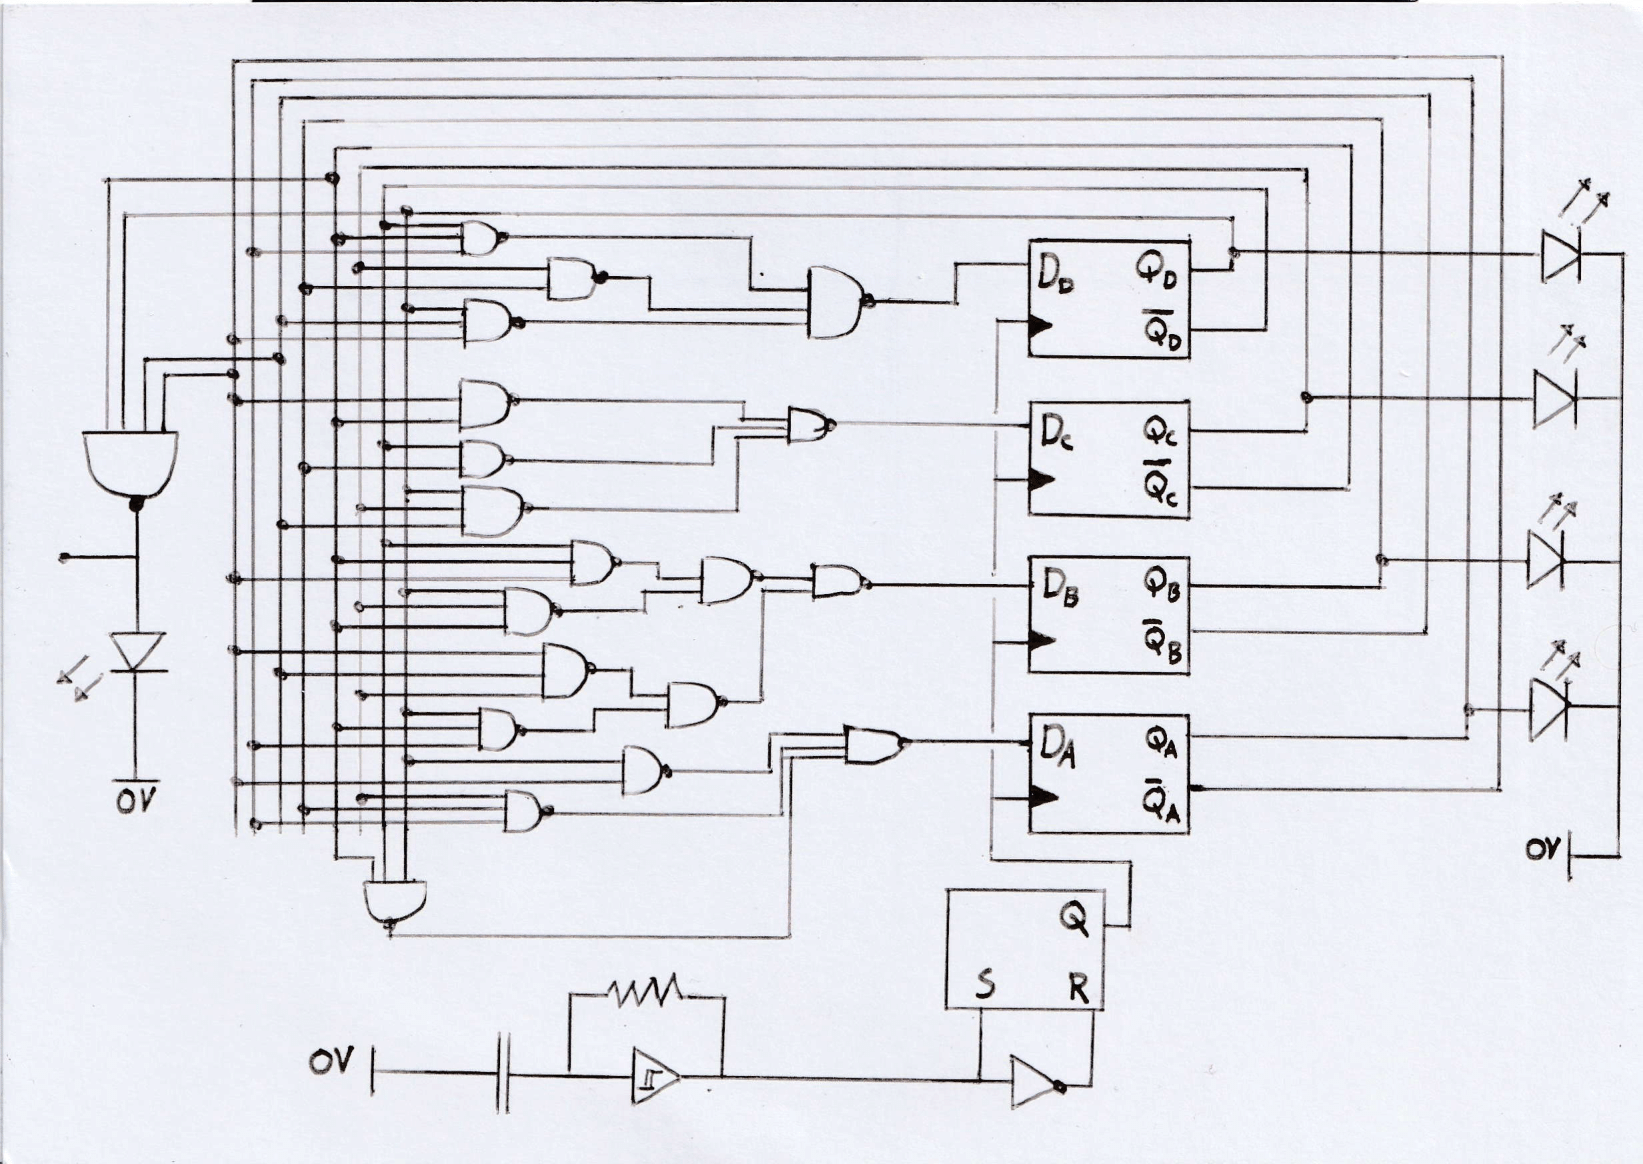 D_D Q_D
Q̅_D
D_C Q_C
Q̅_C
D_B Q_B
Q̅_B
D_A Q_A
Q̅_A
0V
0V
Q
S R
0V